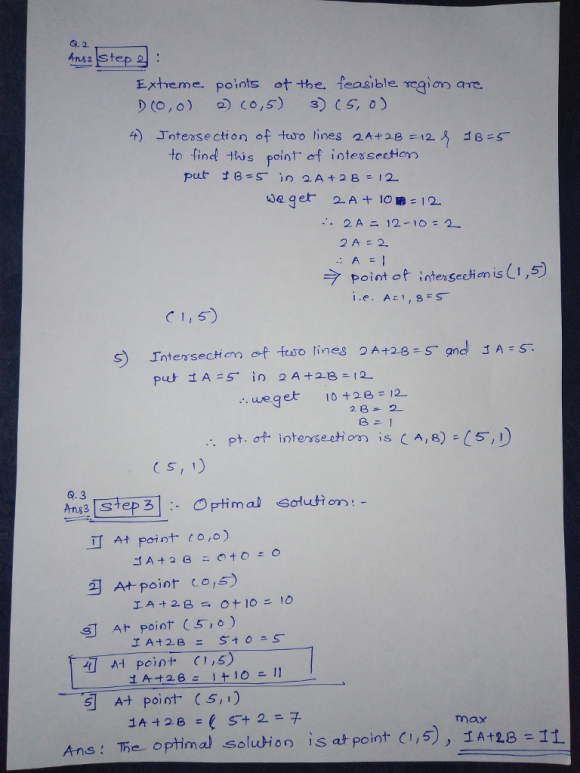 Q.2
Ans2 Step 2 :
Extreme points of the feasible region are
1) (0,0) 2) (0,5) 3) (5,0)
4) Intersection of two lines 2A+2B=12 & 1B=5
to find this point of intersection
put 1B=5 in 2A+2B=12
We get 2A + 10 = 12
∴ 2A = 12-10 = 2
2A = 2
∴ A = 1
⇒ point of intersection is (1,5)
i.e. A=1, B=5
(1,5)
5) Intersection of two lines 2A+2B=5 and 1A=5.
put 1A=5 in 2A+2B=12
∴ we get 10+2B=12
2B = 2
B = 1
∴ pt. of intersection is (A,B) = (5,1)
(5,1)
Q.3
Ans3 Step 3 :- Optimal solution:-
1] At point (0,0)
1A+2B = 0+0 = 0
2] At point (0,5)
1A+2B = 0+10 = 10
3] At point (5,0)
1A+2B = 5+0 = 5
4] At point (1,5)
1A+2B = 1+10 = 11
5] At point (5,1)
1A+2B = ( 5+2 = 7
max
Ans: The optimal solution is at point (1,5), 1A+2B = 11